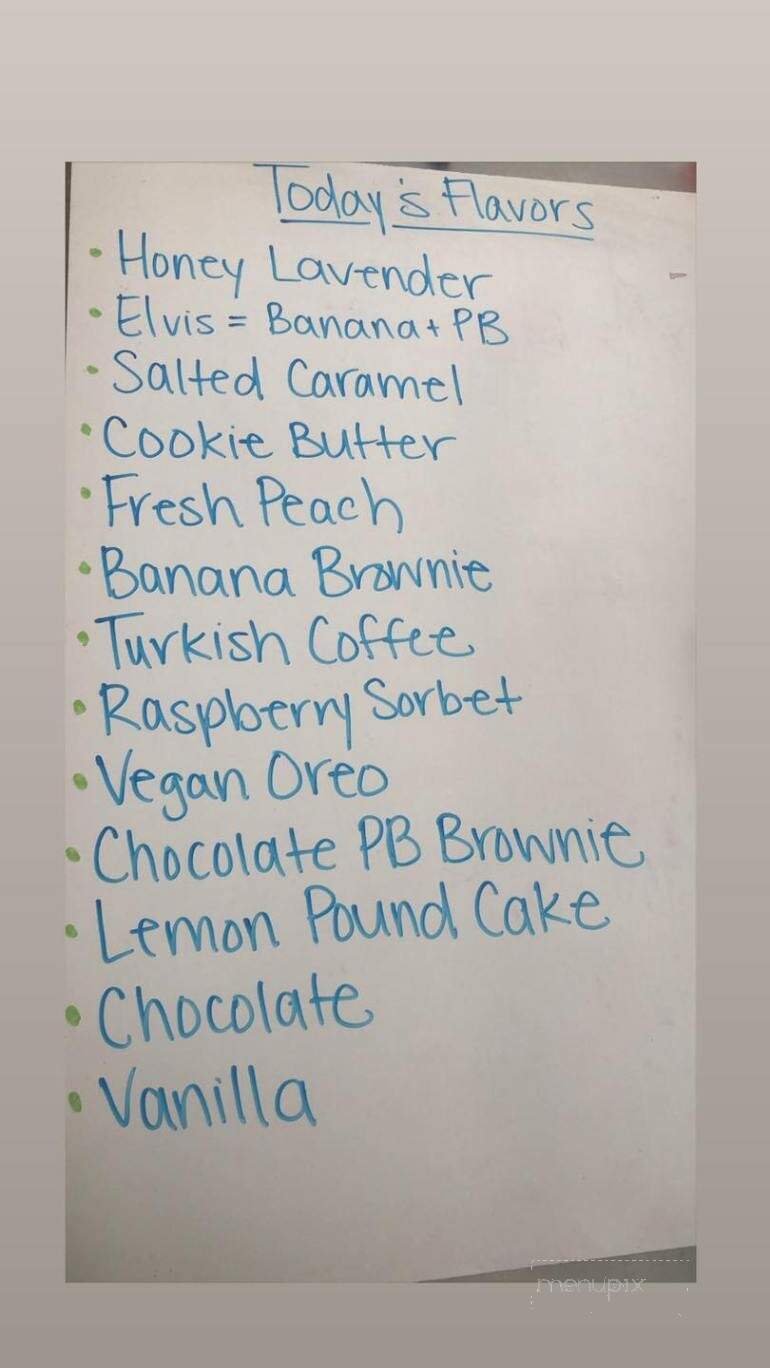 Today's Flavors
• Honey Lavender
• Elvis = Banana + PB
• Salted Caramel
• Cookie Butter
• Fresh Peach
• Banana Brownie
• Turkish Coffee
• Raspberry Sorbet
• Vegan Oreo
• Chocolate PB Brownie
• Lemon Pound Cake
• Chocolate
• Vanilla
menupix